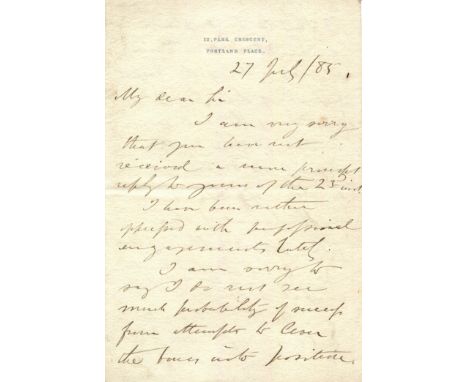 12, PARK CRESCENT,
PORTLAND PLACE.
27 July/85.
My dear Sir
I am very sorry
that you have not
received a more prompt
reply to yours of the 23rd inst
I have been rather
oppressed with professional
engagements lately.
I am sorry to
say I do not see
much probability of success
from attempts to lever
the bones into position